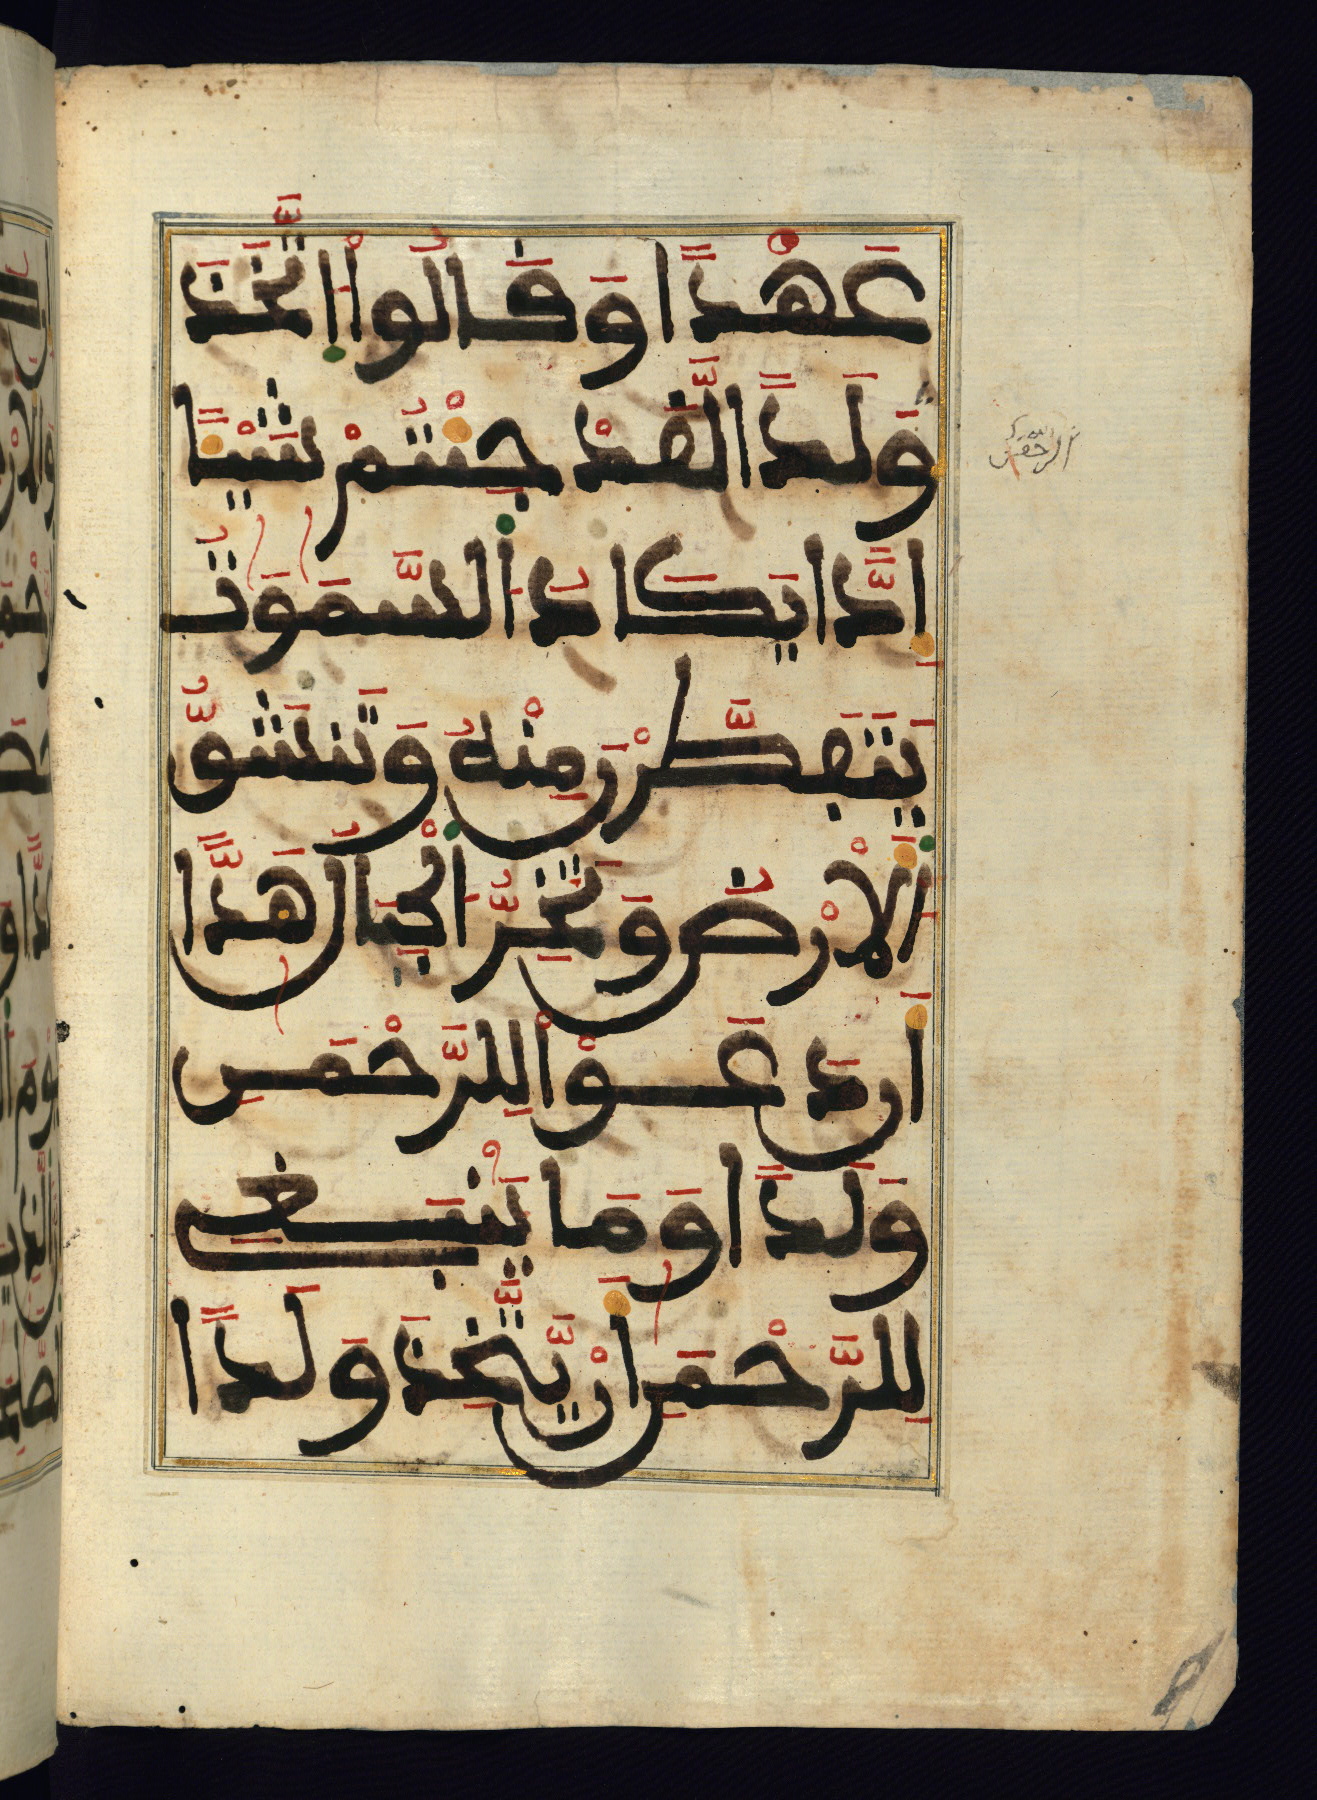 عَهْدًا وَقَالُوا اتَّخَذَ
الرحمن
وَلَدًا لَّقَدْ جِئْتُمْ شَيْـًٔا
إِدًّا يَكَادُ السَّمَٰوَٰتُ
يَتَفَطَّرْنَ مِنْهُ وَتَنشَقُّ
الَارْضُ وَتَخِرُّ الْجِبَالُ هَدًّا
أَن دَعَوْا لِلرَّحْمَٰنِ
وَلَدًا وَمَا يَنۢبَغِے
لِلرَّحْمَٰنِ أَنْ يَّتَّخِذَ وَلَدًا